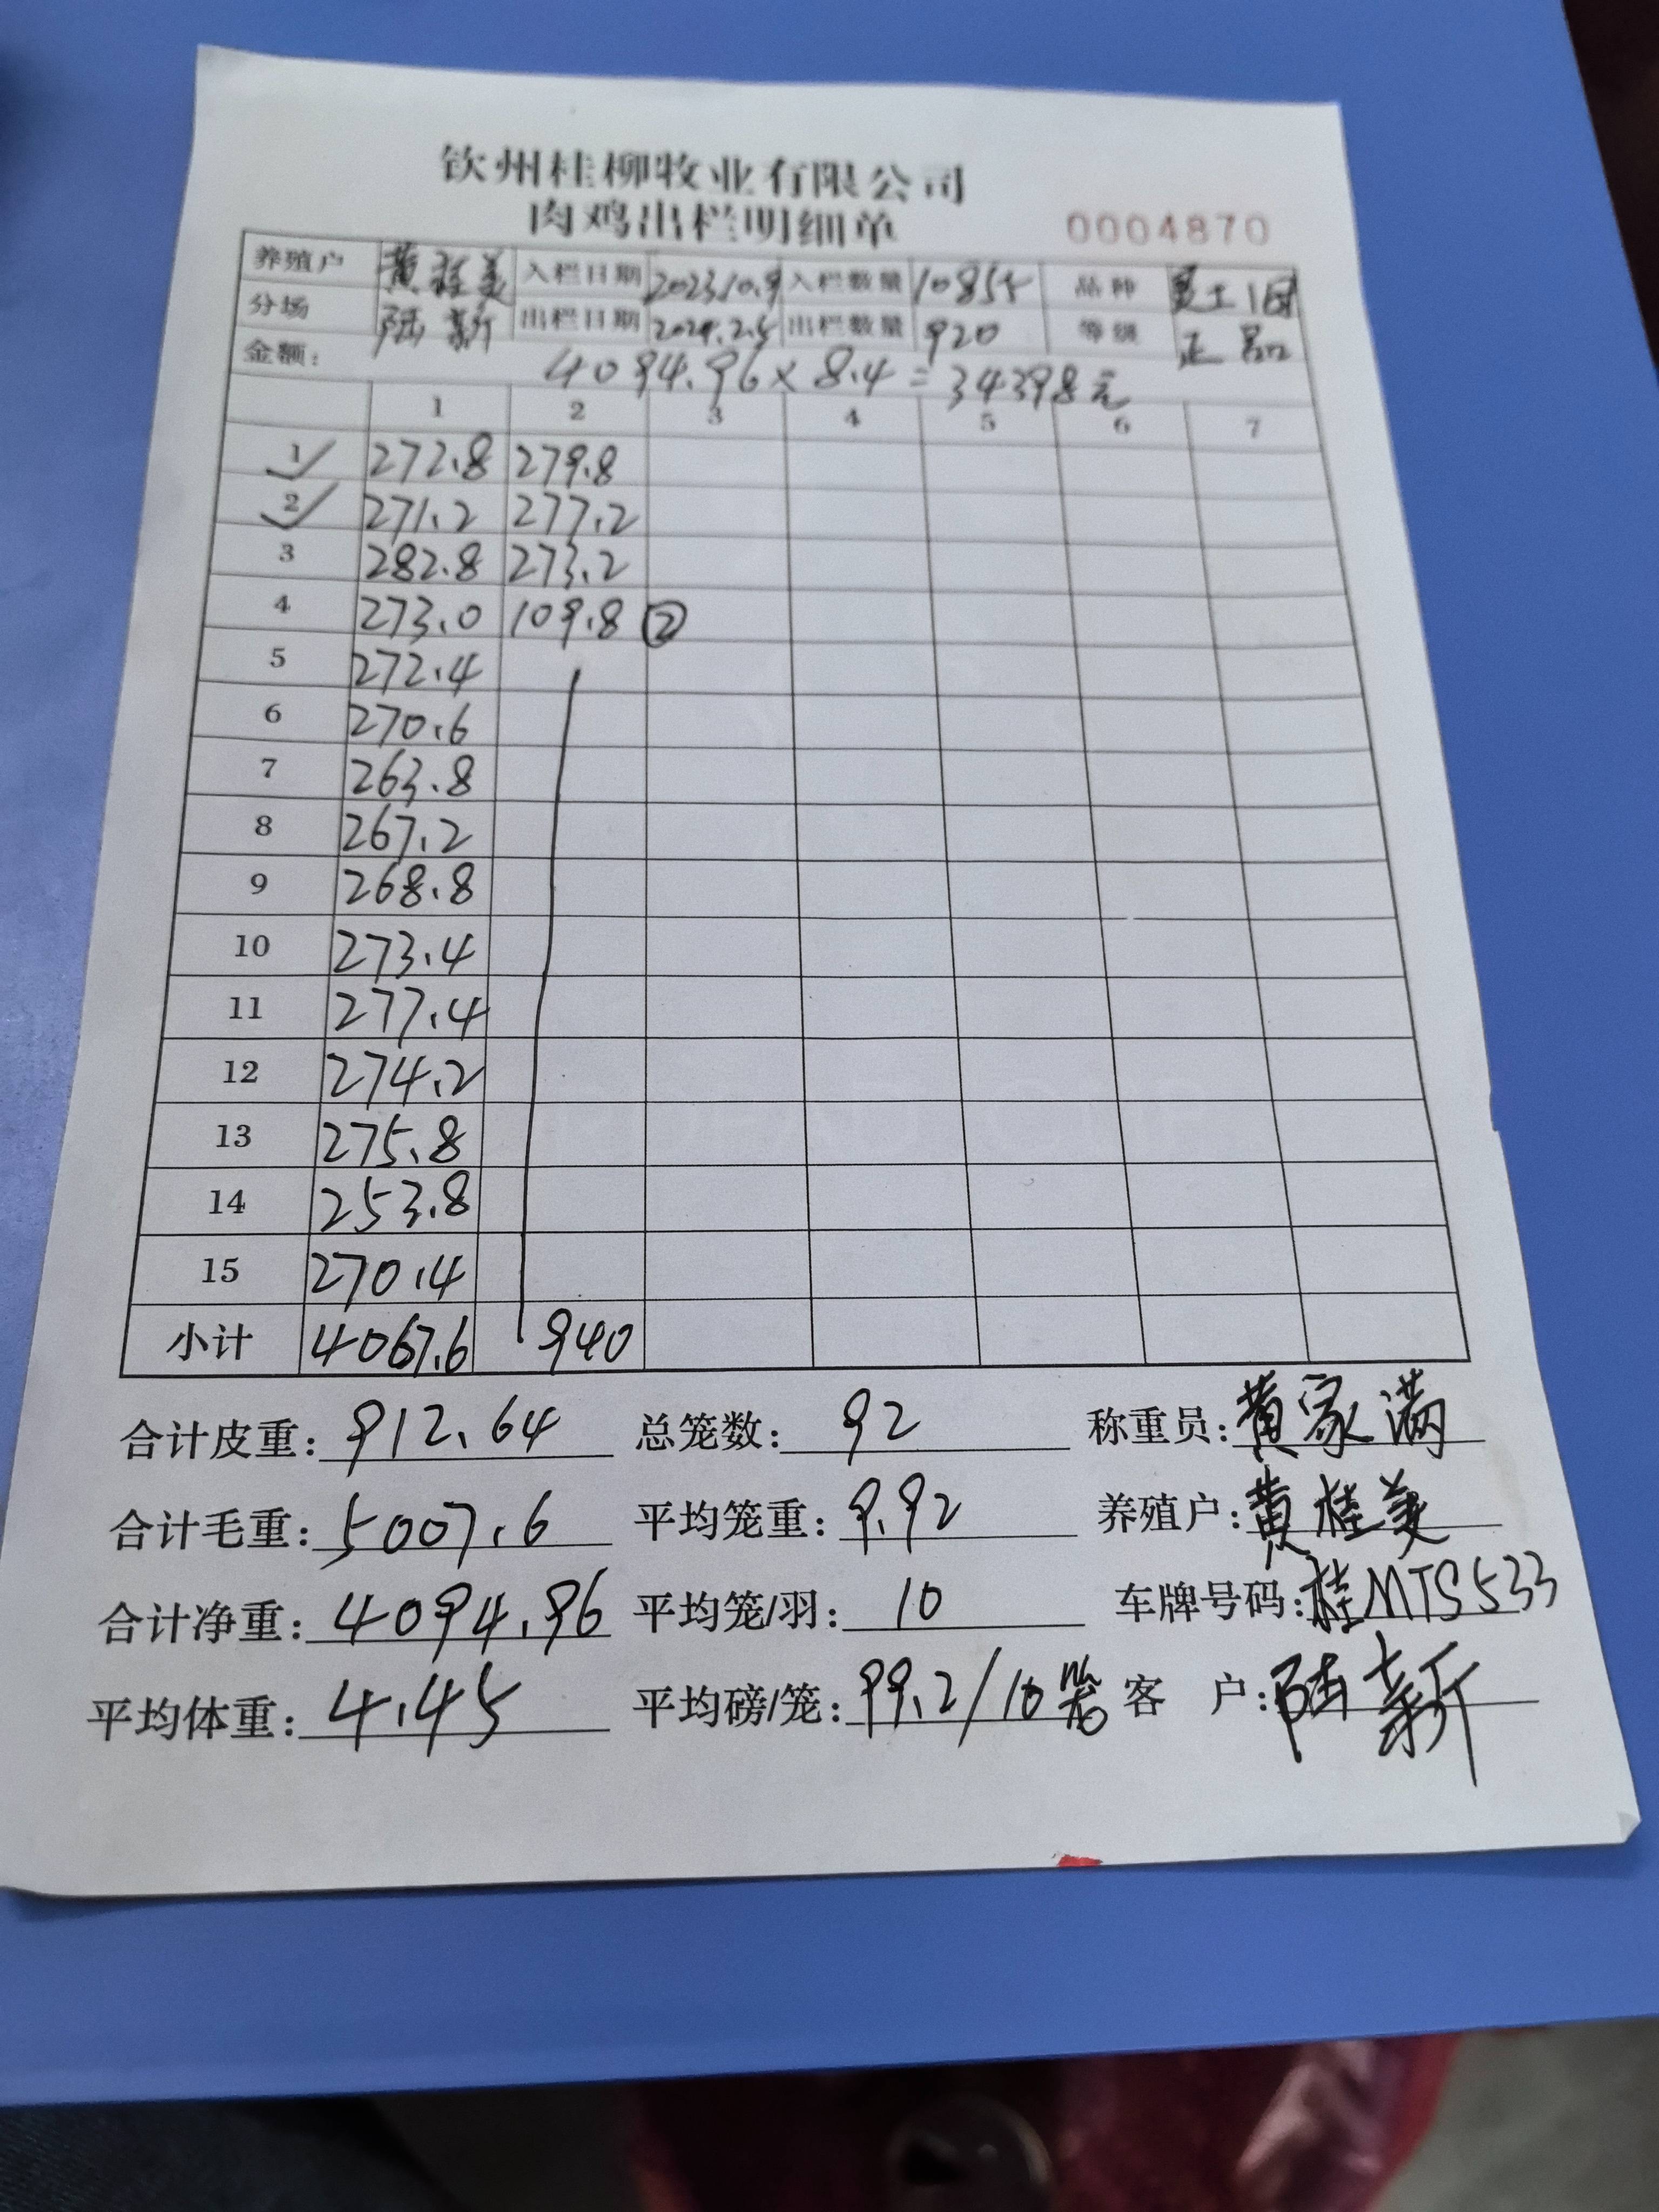 钦州桂柳牧业有限公司
肉鸡出栏明细单 0004870
养殖户 黄桂美 入栏日期 2023.10.9 入栏数量 10855 品种
分场 陆新 出栏日期 2024.2.5 出栏数量 920 等级 正品
金额: 4094.96×8.4=34398元
1 2 3 4 5 6 7
1 272.8 279.8
2 271.2 277.2
3 282.8 273.2
4 273.0 109.8 ②
5 272.4
6 270.6
7 263.8
8 267.2
9 268.8
10 273.4
11 277.4
12 274.2
13 275.8
14 253.8
15 270.4
小计 4067.6 940
合计皮重: 912.64 总笼数: 92 称重员: 黄家满
合计毛重: 5007.6 平均笼重: 9.92 养殖户: 黄桂美
合计净重: 4094.96 平均笼/羽: 10 车牌号码: 桂MTS533
平均体重: 4.45 平均磅/笼: 99.2/10 客 户: 陆新